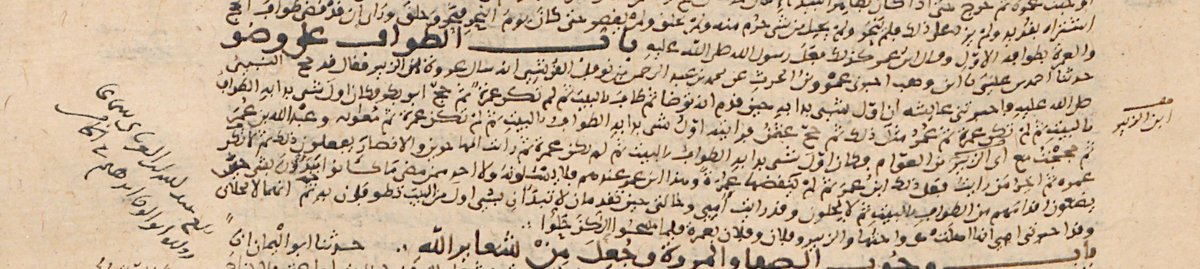 اشتراه بقديد ولم يزد على ذلك فلم ينحر ولم يحل من شي حرم منه ولم يحلق ولم يقصر حتى كان يوم النحر فنحر وحلق وراى ان قد قضى طواف الحج
والعمرة بطوافه الاول وقال ابن عمر كذلك فعل رسول الله صلى الله عليه باب الطواف على وضو
حدثنا احمد بن عيسى نا ابن وهب اخبرني عمرو بن الحرث عن محمد بن عبد الرحمن بن نوفل القرشي انه سال عروة بن الزبير فقال قد حج النبي
صلى الله عليه واخبرتني عايشه ان اول شي بدا به حين قدم انه توضا ثم طاف بالبيت ثم لم تكن عمرة ثم حج ابو بكر فكان اول شي بدا به الطواف
بالبيت ثم لم تكن عمرة ثم عمر مثل ذلك ثم حج عثمن فرايته اول شي بدا به الطواف بالبيت ثم لم تكن عمرة ثم معوية وعبد الله بن عمر
ثم حججت مع ابي الزبير بن العوام فكان اول شي بدا به الطواف بالبيت ثم لم تكن عمرة ثم رايت المهاجرين والانصار يفعلون ذلك ثم لم تكن
عمرة ثم اخر من رايت فعل ذلك ابن عمر ثم لم ينقضها عمرة وهذا ابن عمر عندهم فلا يسلونه ولا احد ممن مضى ما كانوا يبدون بشي حين
يضعون اقدامهم من الطواف بالبيت ثم لا يحلون وقد رايت امي وخالتي حين تقدمان لا تبتدان بشي اول من البيت تطوفان به ثم انهما لا تحلان
وقد اخبرتني امي انها اهلت هي واختها والزبير وفلان وفلان بعمرة فلما مسحوا الركن حلوا
باب وجوب الصفا والمروة وجعل من شعاير الله حدثنا ابو اليمان انا
ابن الزبير